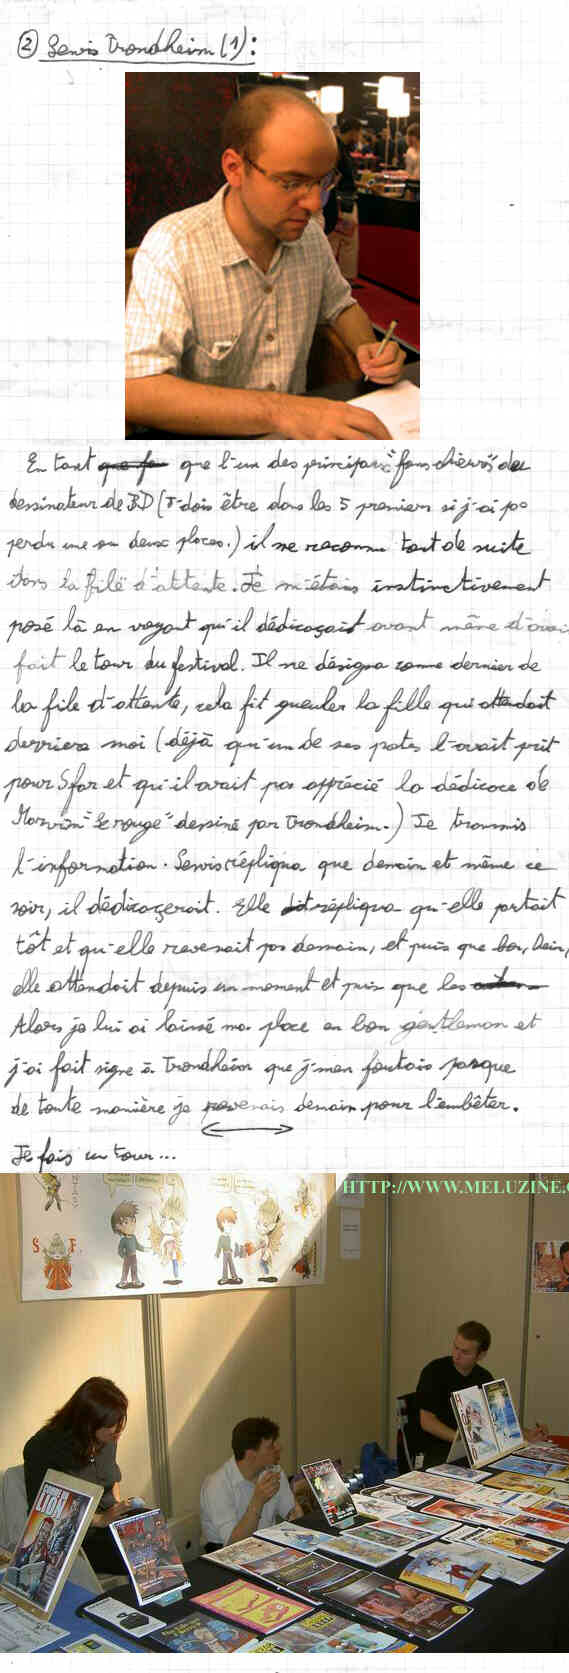 ② Lewis Trondheim (1):
En tant que fan que l'un des principaux "fans chieurs" du
dessinateur de BD (J'dois être dans les 5 premiers si j'ai pas
perdu une ou deux places.) il me reconnu tout de suite
dans la file d'attente. Je m'étais instinctivement
posé là en voyant qu'il dédicaçait avant même d'avoir
fait le tour du festival. Il me désigna comme dernier de
la file d'attente, cela fit gueuler la fille qui attendait
derriere moi (déjà qu'un de ses potes l'avait prit
pour Sfar et qu'il avait pas apprécié la dédicace de
Marvin "le rouge" dessiné par Trondheim.) Je transmis
l'information. Lewis répliqua que demain et même ce
soir, il dédicaçerait. Elle répliqua qu'elle partait
tôt et qu'elle revenait pas demain, et puis que bon, hein,
elle attendait depuis un moment et puis que les
Alors je lui ai laissé ma place en bon gentleman et
j'ai fait signe à Trondheim que j'men foutais pasque
de toute manière je revenais demain pour l'embêter.
Je fais un tour...
HTTP://WWW.MELUZINE.
S. F.